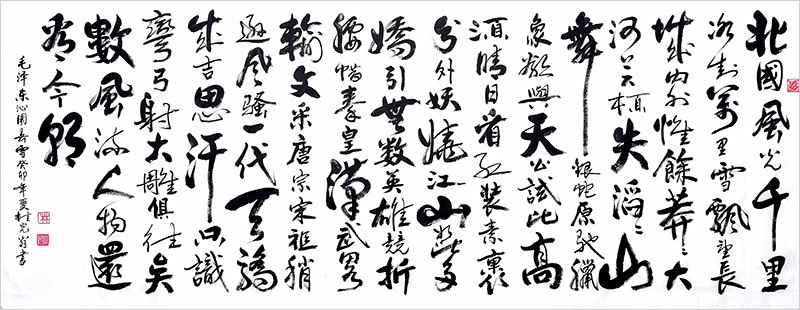 北國風光千里
冰封萬里雪飄望長
城内外惟餘莽〻大
河上下頓失滔〻山
舞銀蛇原馳蠟
象欲與天公試比高
須晴日看紅裝素裹
分外妖嬈江山如此多
嬌引無數英雄競折
腰惜秦皇漢武略
輸文采唐宗宋祖稍
遜風騷一代天驕
成吉思汗只識
彎弓射大雕俱往矣
數風流人物還
看今朝
毛泽东沁園春雪癸卯年夏翁書